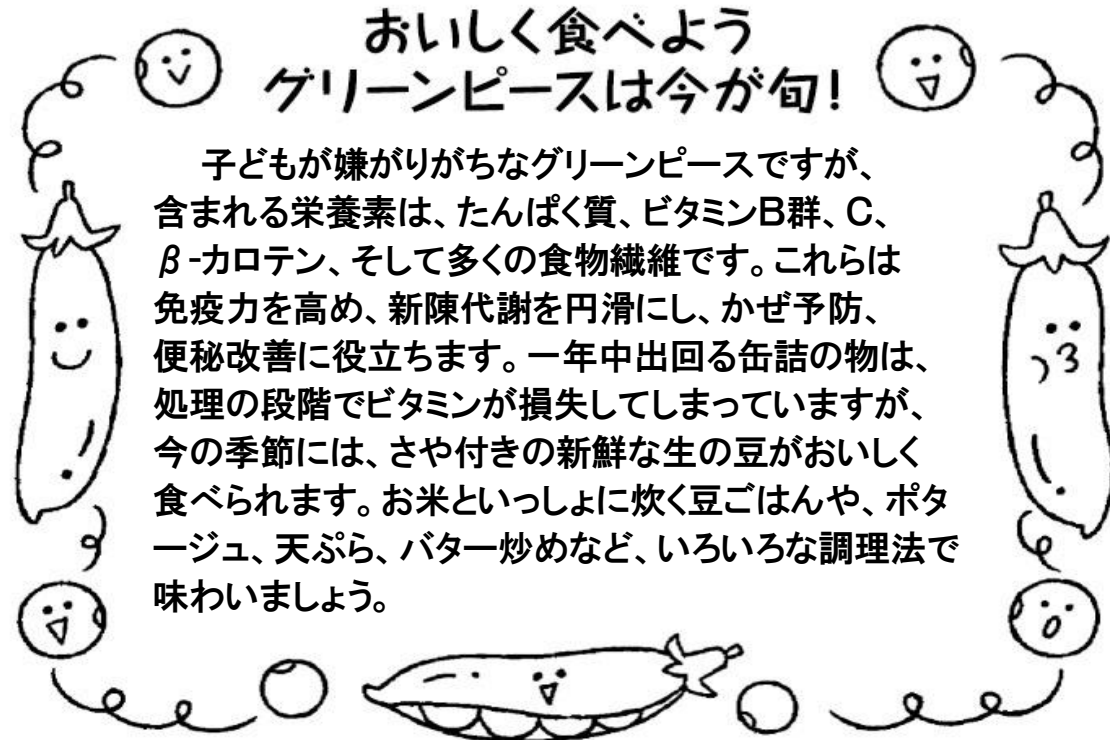 おいしく食べよう
グリーンピースは今が旬！
子どもが嫌がりがちなグリーンピースですが、
含まれる栄養素は、たんぱく質、ビタミンB群、C、
β-カロテン、そして多くの食物繊維です。これらは
免疫力を高め、新陳代謝を円滑にし、かぜ予防、
便秘改善に役立ちます。一年中出回る缶詰の物は、
処理の段階でビタミンが損失してしまっていますが、
今の季節には、さや付きの新鮮な生の豆がおいしく
食べられます。お米といっしょに炊く豆ごはんや、ポタ
ージュ、天ぷら、バター炒めなど、いろいろな調理法で
味わいましょう。